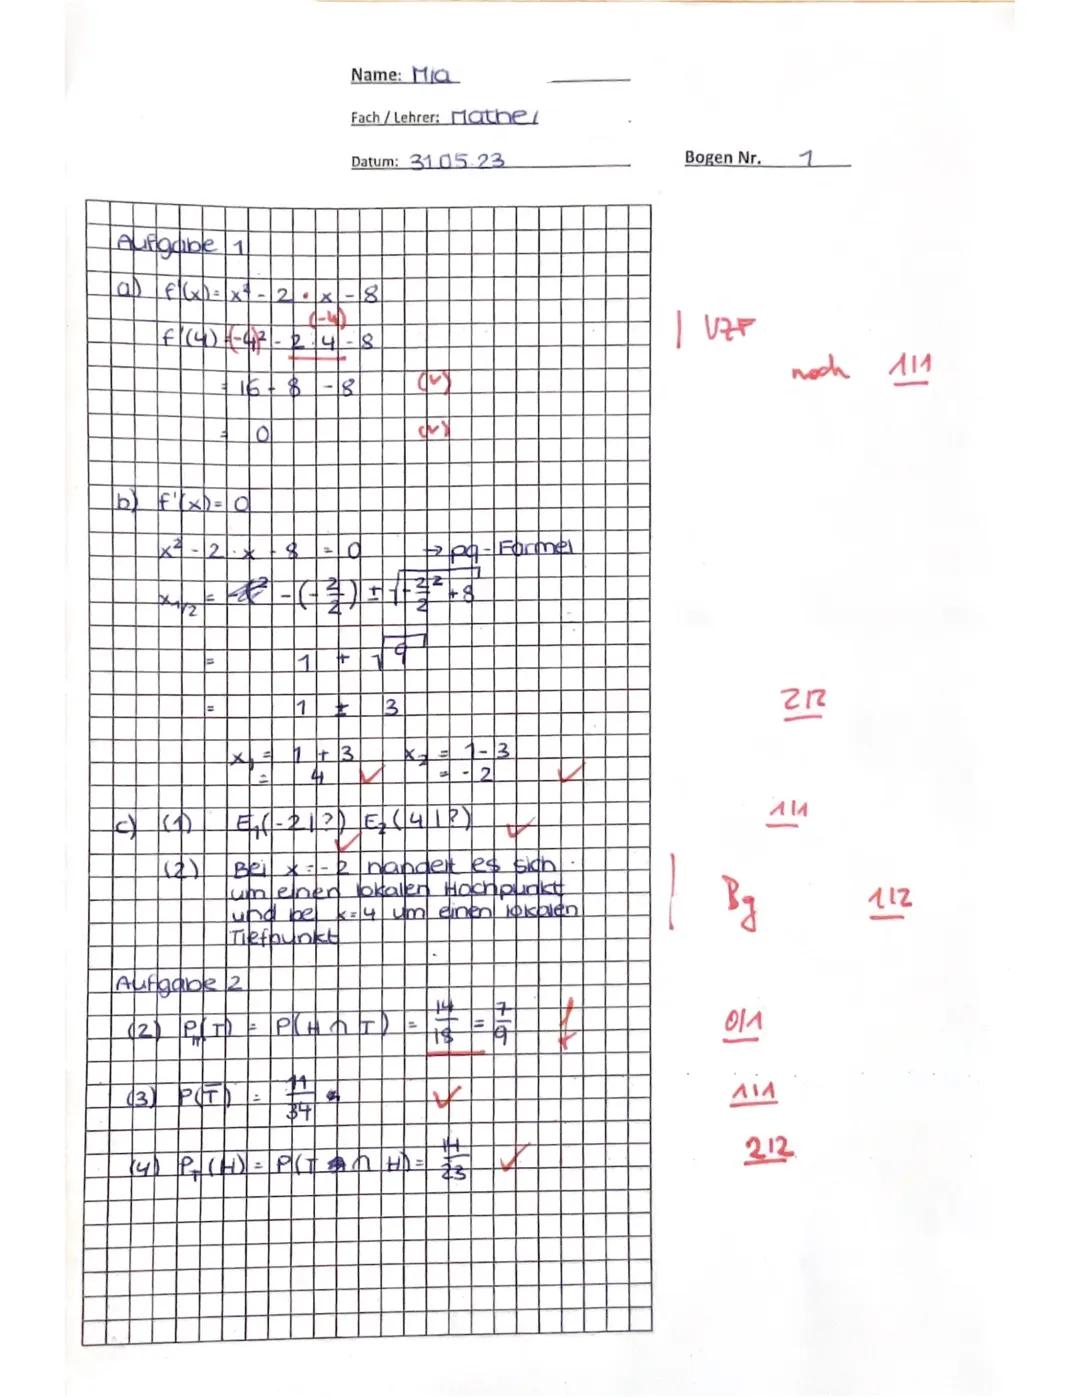 Name: Mia
Fach / Lehrer: Mathe/
Datum: 31.05.23
Bogen Nr. 1
Aufgabe 1
a) f'(x) = x² - 2 · x - 8
(-4)
f'(4) (-4)² - 2·4 - 8
| VZF
= 16 + 8 - 8 (✓)
noch 1/1
= 0 (✓)
b) f'(x) = 0
x² - 2 · x - 8 = 0 → pq-Formel
x₁/₂ = -(-2/2) ± √(-2/2² + 8)
= 1 + √9
= 1 ± 3
2/2
x₁ = 1 + 3 x₂ = 1 - 3
= 4 ✓ = -2 ✓
c) (1) E₁(-2|?) E₂(4|?) ✓
1/1
(2) Bei x = -2 handelt es sich
um einen lokalen Hochpunkt
und bei x=4 um einen lokalen
Tiefpunkt
| Bg 1/2
Aufgabe 2
(2) P_H(T) = P(H ∩ T) = 14/18 = 7/9 f
0/1
(3) P(T̅) = 11/34 ✓
1/1
(4) P_T(H) = P(T ∩ H) = 14/23 ✓
2/2